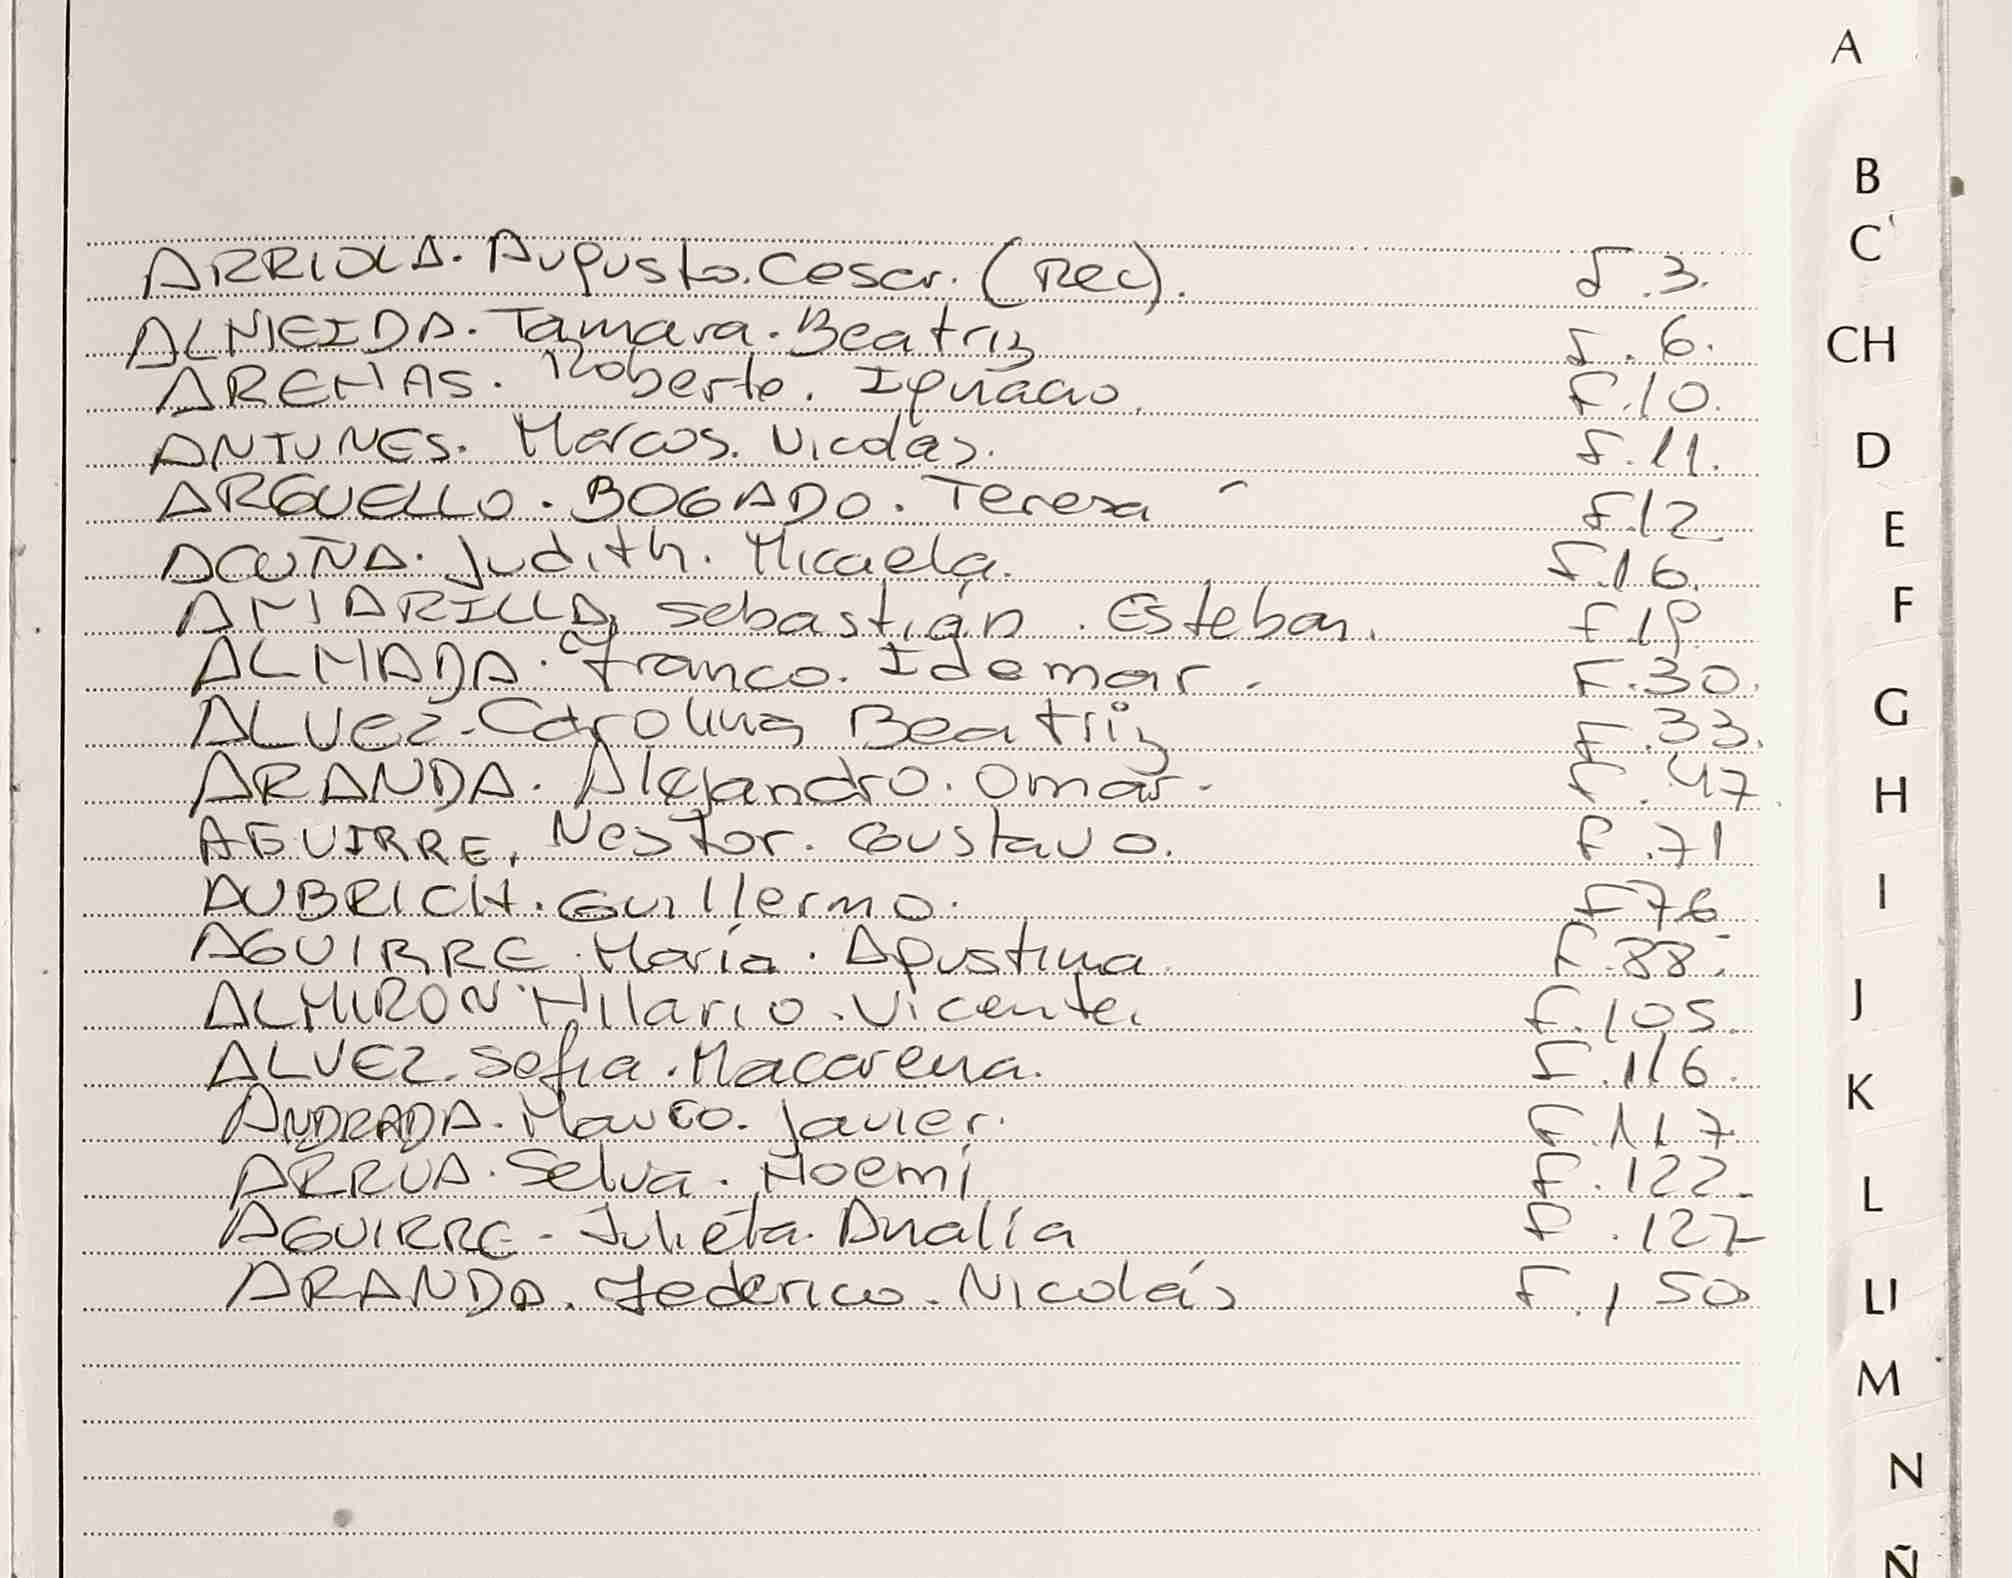 A
B
C
ARRIOLA. Augusto. Cesar. (Rec). f. 3.
ALMEIDA. Tamara. Beatriz f. 6.
CH
ARENAS. Roberto. Ignacio. F. 10.
ANTUNES. Marcos. Nicolás. f. 11.
D
ARGUELLO. BOGADO. Teresa f. 12
E
ACUÑA. Judith. Micaela. F. 16.
AMARILLA, Sebastián. Esteban. f 19
F
ALMADA. Franco. Idemar. F. 30.
ALVEZ. Carolina Beatriz F. 33.
G
ARANDA. Alejandro. Omar. F. 47
H
AGUIRRE, Nestor. Gustavo. f. 71
AUBRICH. Guillermo. F 76
I
AGUIRRE. María. Agustina F. 88.
ALMIRON. Hilario. Vicente. F. 105.
J
ALVEZ. Sofia. Macarena. F. 116.
K
ANDRADA. Mauro. Javier. F. 117
ARRUA. Selva. Noemí F. 122.
L
AGUIRRE. Julieta. Analía F. 127
ARANDA. Federico. Nicolás F. 150
Ll
M
N
Ñ